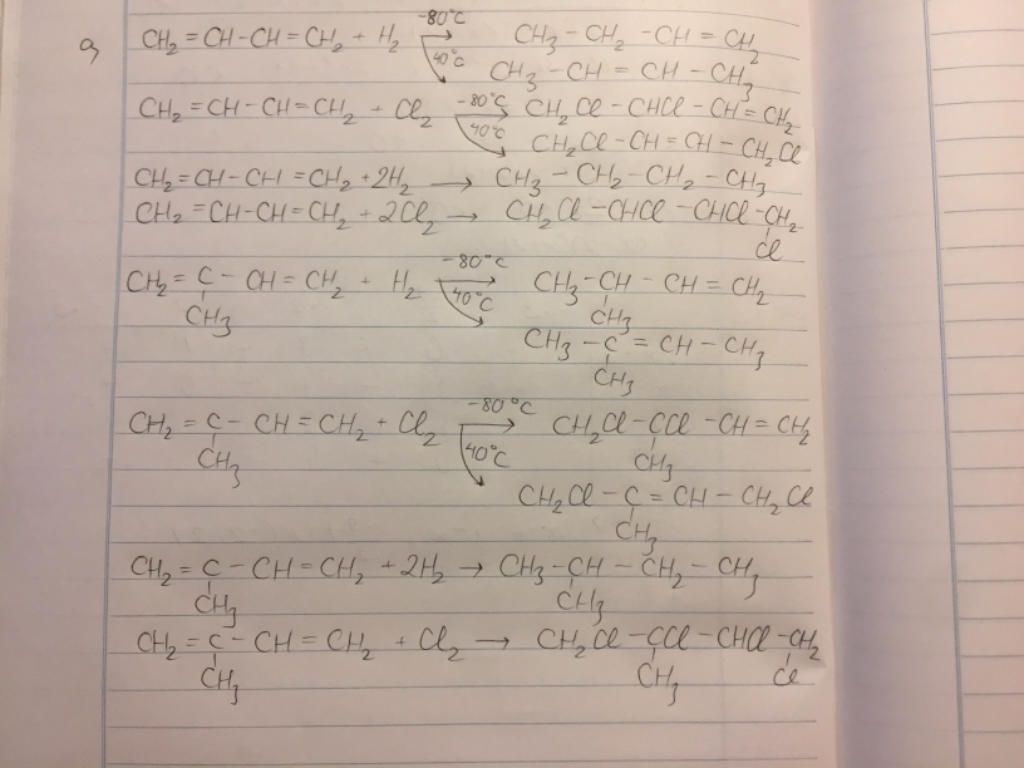 a) CH₂ = CH - CH = CH₂ + H₂ -80°C → CH₃ - CH₂ - CH = CH₂
40°C CH₃ - CH = CH - CH₃
CH₂ = CH - CH = CH₂ + Cl₂ -80°C → CH₂Cl - CHCl - CH = CH₂
40°C CH₂Cl - CH = CH - CH₂Cl
CH₂ = CH - CH = CH₂ + 2H₂ → CH₃ - CH₂ - CH₂ - CH₃
CH₂ = CH - CH = CH₂ + 2Cl₂ → CH₂Cl - CHCl - CHCl - CH₂
Cl
CH₂ = C - CH = CH₂ + H₂ -80°C → CH₃ - CH - CH = CH₂
CH₃ 40°C CH₃
CH₃ - C = CH - CH₃
CH₃
CH₂ = C - CH = CH₂ + Cl₂ -80°C → CH₂Cl - CCl - CH = CH₂
CH₃ 40°C CH₃
CH₂Cl - C = CH - CH₂Cl
CH₃
CH₂ = C - CH = CH₂ + 2H₂ → CH₃ - CH - CH₂ - CH₃
CH₃ CH₃
CH₂ = C - CH = CH₂ + Cl₂ → CH₂Cl - CCl - CHCl - CH₂
CH₃ CH₃ Cl